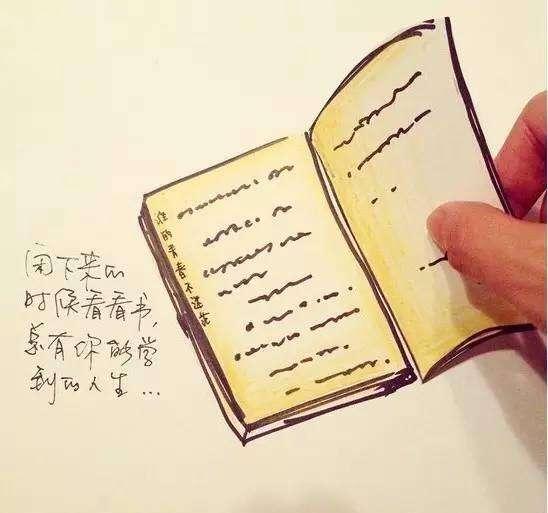 闲下来的
时候看看书,
总有你能学
到的人生...
谁的青春不迷茫